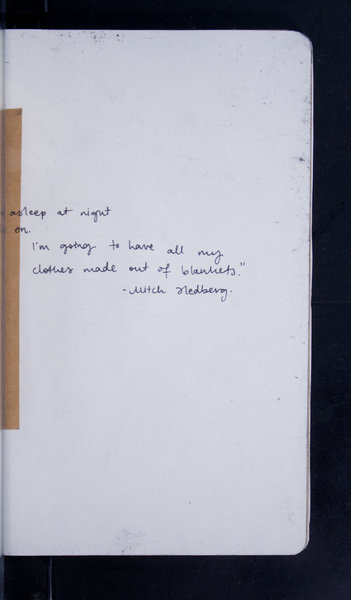 asleep at night
on.
I'm going to have all my
clothes made out of blankets."
- Mitch Hedberg.